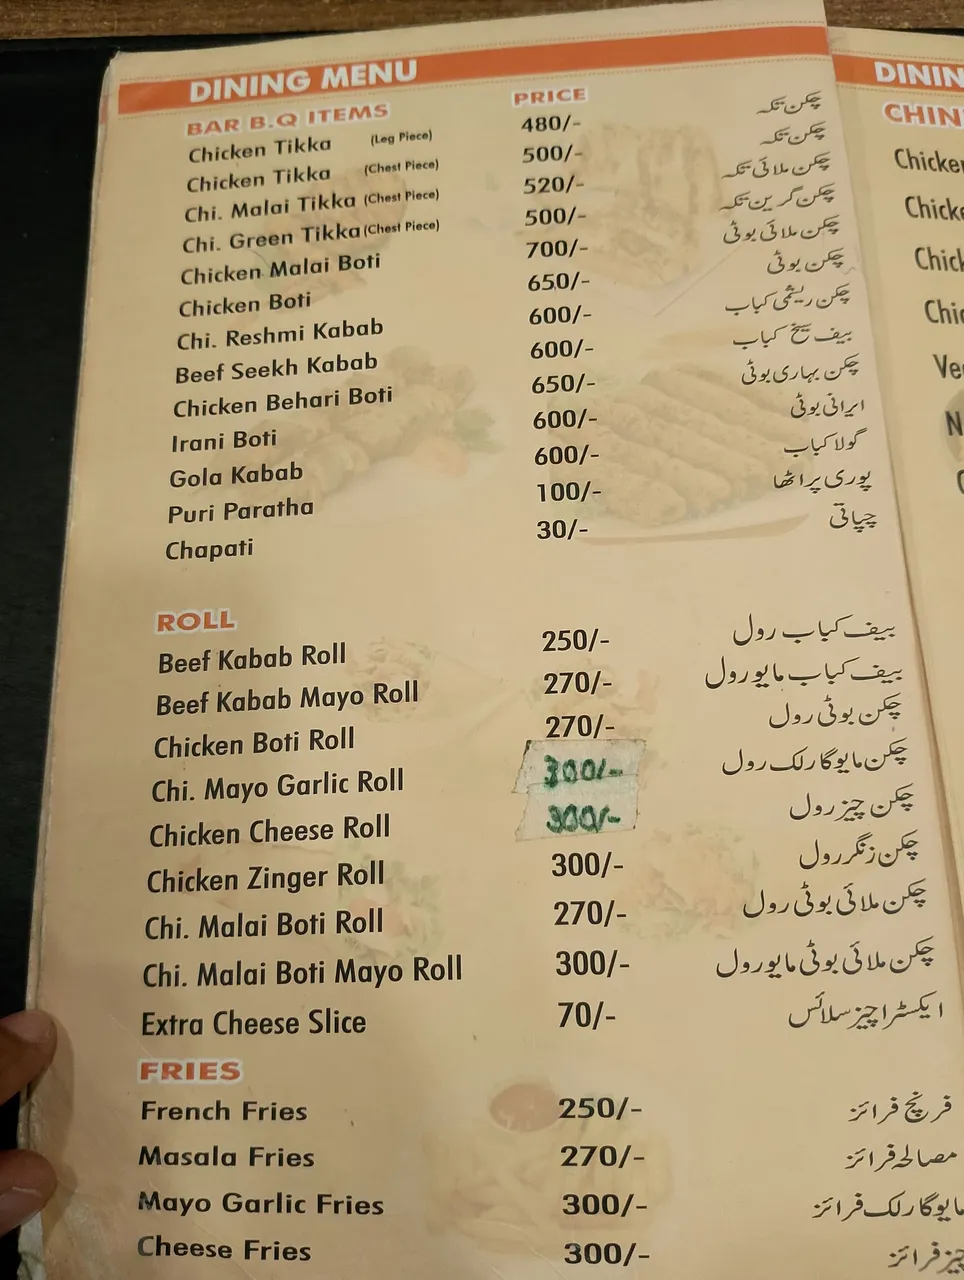 DINING MENU
BAR B.Q ITEMS PRICE
Chicken Tikka (Leg Piece) 480/- چکن تکہ
Chicken Tikka (Chest Piece) 500/- چکن تکہ
Chi. Malai Tikka (Chest Piece) 520/- چکن ملائی تکہ
Chi. Green Tikka (Chest Piece) 500/- چکن گرین تکہ
Chicken Malai Boti 700/- چکن ملائی بوٹی
Chicken Boti 650/- چکن بوٹی
Chi. Reshmi Kabab 600/- چکن ریشمی کباب
Beef Seekh Kabab 600/- بیف سیخ کباب
Chicken Behari Boti 650/- چکن بہاری بوٹی
Irani Boti 600/- ایرانی بوٹی
Gola Kabab 600/- گولا کباب
Puri Paratha 100/- پوری پراٹھا
Chapati 30/- چپاتی
ROLL
Beef Kabab Roll 250/- بیف کباب رول
Beef Kabab Mayo Roll 270/- بیف کباب مایو رول
Chicken Boti Roll 270/- چکن بوٹی رول
Chi. Mayo Garlic Roll 300/- چکن مایو گارلک رول
Chicken Cheese Roll 300/- چکن چیز رول
Chicken Zinger Roll 300/- چکن زنگر رول
Chi. Malai Boti Roll 270/- چکن ملائی بوٹی رول
Chi. Malai Boti Mayo Roll 300/- چکن ملائی بوٹی مایو رول
Extra Cheese Slice 70/- ایکسٹرا چیز سلائس
FRIES
French Fries 250/- فرنچ فرائز
Masala Fries 270/- مصالحہ فرائز
Mayo Garlic Fries 300/- مایو گارلک فرائز
Cheese Fries 300/- چیز فرائز
DININ
CHIN
Chicke
Chicke
Chick
Chi
Ve
N